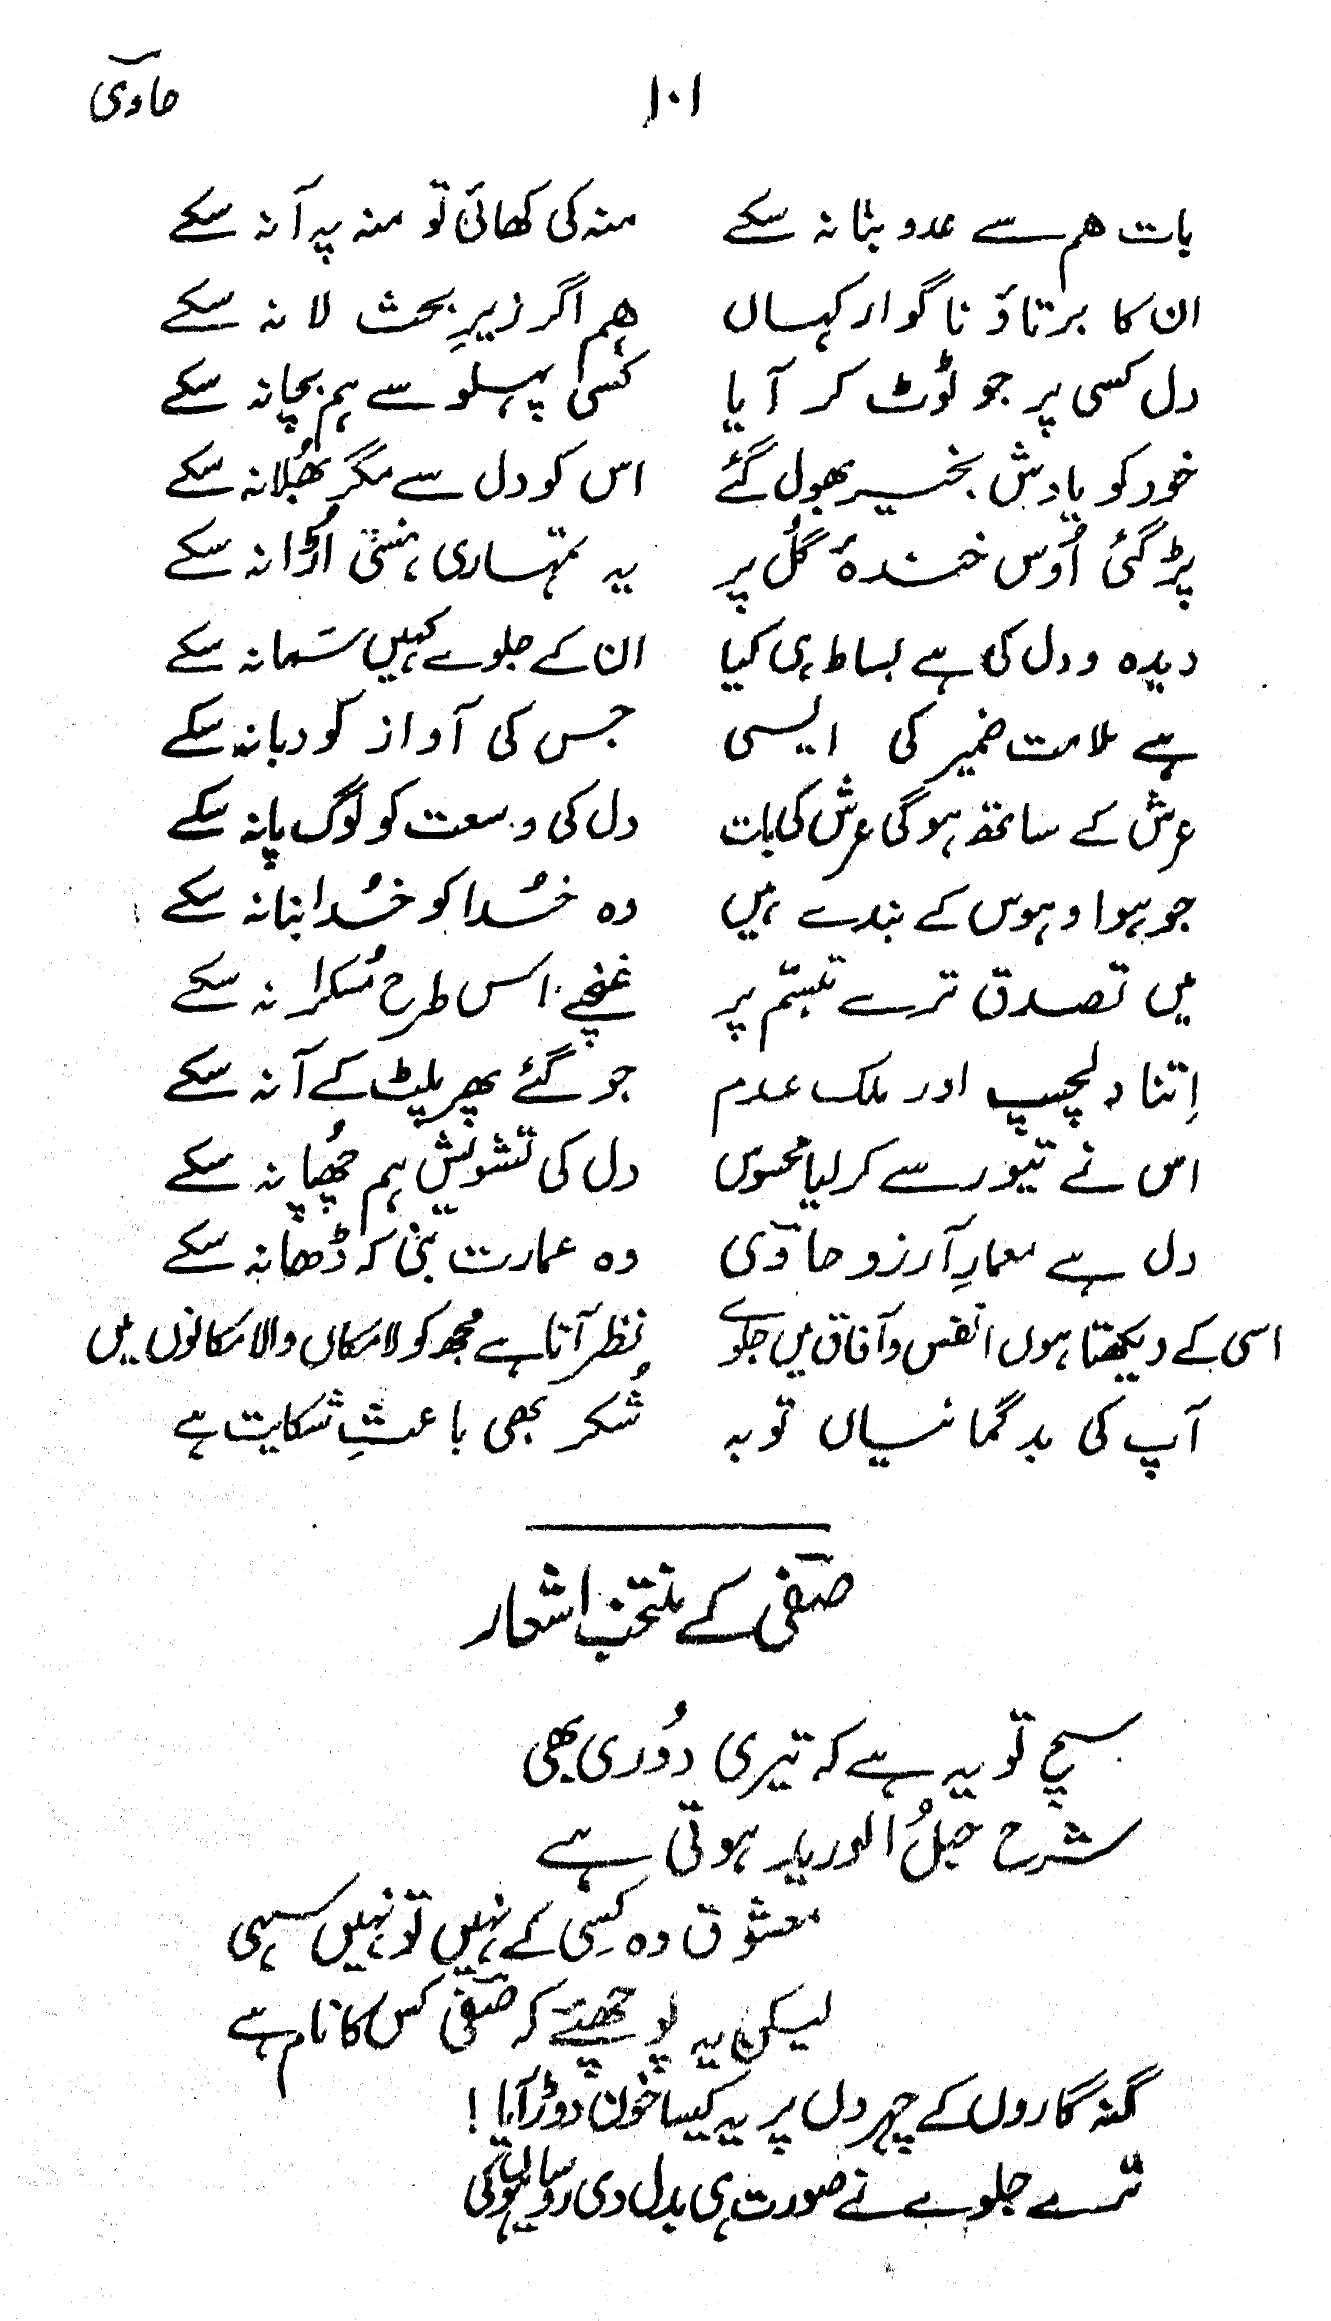 ۱۰۱ حاوی
بات ہم سے عدو بنا نہ سکے منہ کی کھائی تو منہ پہ آ نہ سکے
ان کا برتاؤ نا گوار کہاں ہم اگر زیرِ بحث لا نہ سکے
دل کسی پر جو لوٹ کر آیا کسی پہلو سے ہم بچا نہ سکے
خود کو یادش بخیر بھول گئے اس کو دل سے مگر بھُلا نہ سکے
پڑ گئی اُوس خندۂ گلُ پر یہ تمہاری ہنسی اُڑا نہ سکے
دیدہ و دل کی ہے بساط ہی کیا ان کے جلوے کہیں سَما نہ سکے
ہے ملامت ضمیر کی ایسی جس کی آواز کو دبا نہ سکے
عرش کے ساتھ ہوگی عرش کی بات دل کی وسعت کو لوگ پا نہ سکے
جو ہوا و ہوس کے بندے ہیں وہ خُدا کو خُدا بنا نہ سکے
میں تصدق ترے تبسّم پر غنچے اس طرح مُسکرا نہ سکے
اِتنا دلچسپ اور ملک عدم جو گئے پھر پلیٹ کے آ نہ سکے
اس نے تیور سے کر لیا محسوس دل کی تشویش ہم چھُپا نہ سکے
دل ہے معمارِ آرزو حاوی وہ عمارت بنی کہ ڈھا نہ سکے
اسی کے دیکھتا ہوں انفس و آفاق میں جلوے نظر آتا ہے مجھ کو لامکاں والا مکانوں میں
آپ کی بدگمانیاں توبہ شُکر بھی باعثِ شکایت ہے
صفی کے منتخب اشعار
سچ تو یہ ہے کہ تیری دُوری بھی
شرح حبلُ الورید ہوتی ہے
معشوق وہ کِسی کے نہیں تو نہیں سہی
لیکن یہ پوچھئے کہ صفی کس کا نام ہے
گنہ گاروں کے چہر دل پر یہ کیسا خون دوڑ آیا !
ترے جلوے نے صورت ہی بدل دی روسیاہوں کی